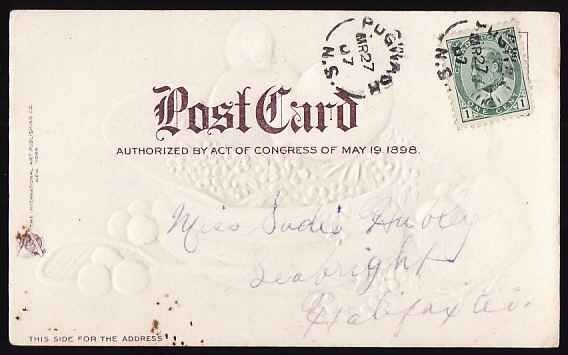 PUGWASH
MR 27
07
N.S.
PUGWASH
MR 27
07
N.S.
1
1
Post Card
AUTHORIZED BY ACT OF CONGRESS OF MAY 19 1898.
THE INTERNATIONAL ART PUBLISHING CO.
NEW YORK
Miss Sadie
Seabright
Halifax Co.
THIS SIDE FOR THE ADDRESS